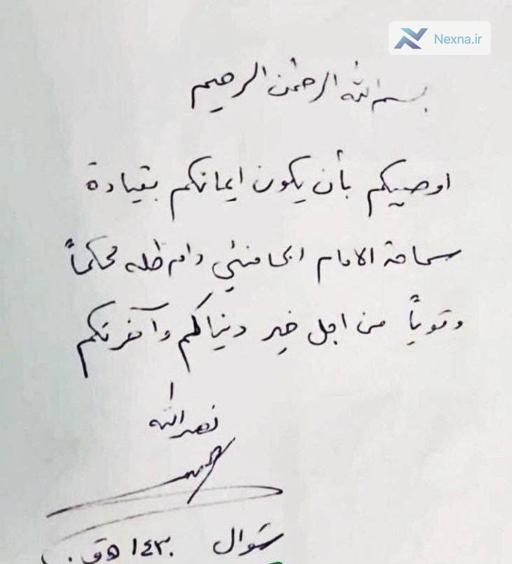 Nexna.ir
بسم الله الرحمن الرحيم
اوصيكم بأن يكون ايمانكم بقيادة
سماحة الامام الخامنئي دام ظله محكماً
وقوياً من اجل خير دنياكم وآخرتكم
نصر الله
شوال ١٤٣٠ هـ ق.